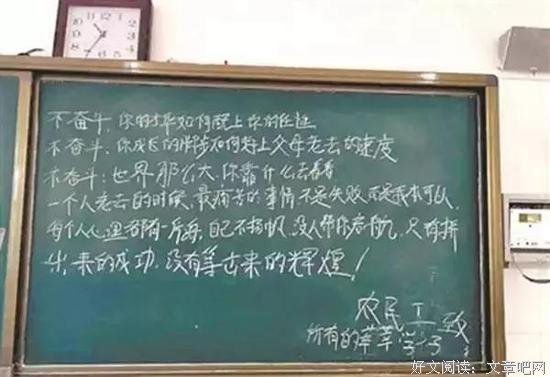 不奋斗,你的才华如何配上你的任性
不奋斗:你成长的脚步如何赶上父母老去的速度
不奋斗:世界那么大,你靠什么去看看
一个人老去的时候,最痛苦的事情不是失败,而是我本可以,
每个人心里都有一片海,自己不扬帆,没人帮你启航,只有拼
出来的成功,没有等出来的辉煌!
农民工致
所有的莘莘学子
好文阅读:文章吧网